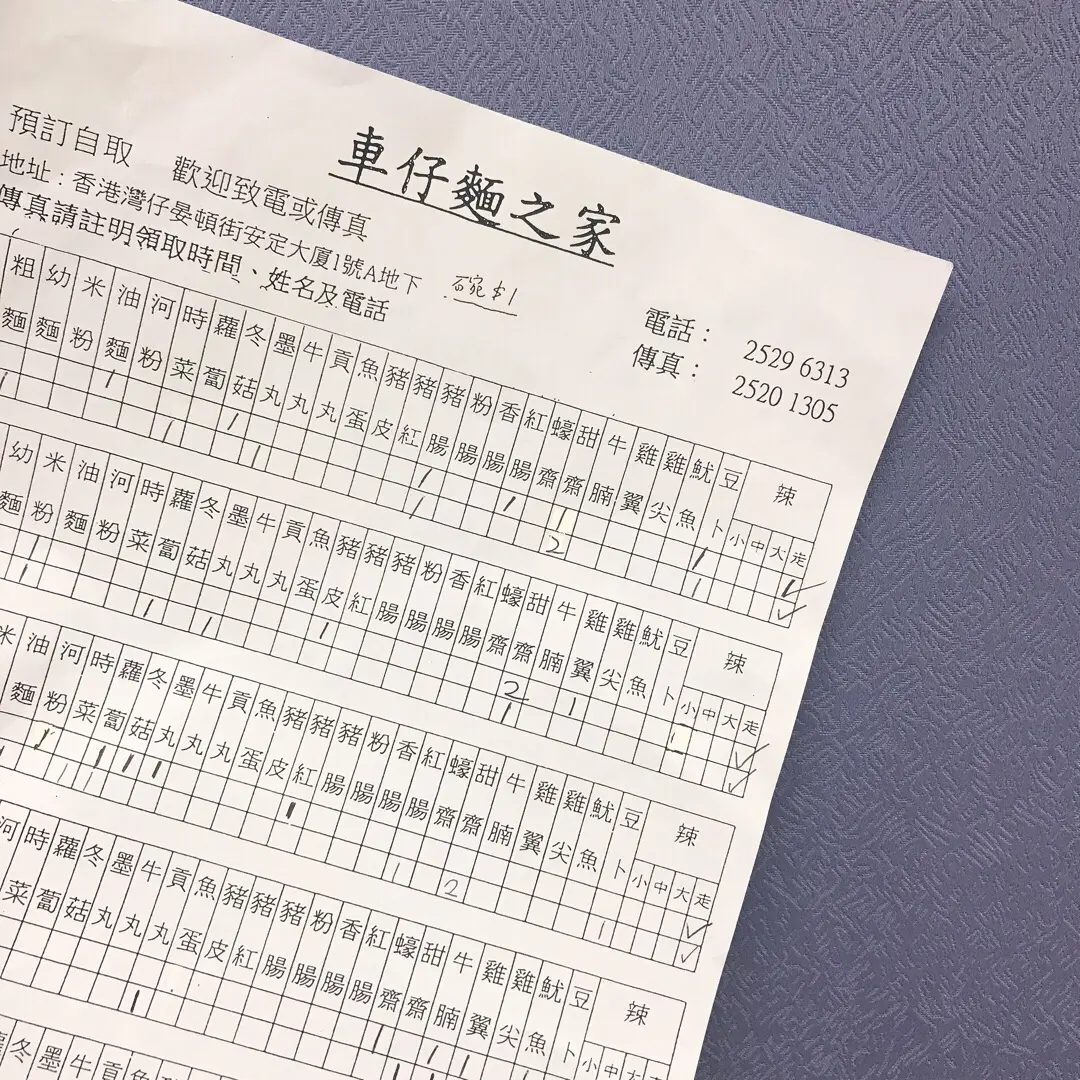 車仔麵之家
預訂自取 歡迎致電或傳真
地址：香港灣仔晏頓街安定大廈1號A地下
傳真請註明領取時間、姓名及電話
碗$1
電話： 2529 6313
傳真： 2520 1305
粗 幼 米 油 河 時 蘿 冬 墨 牛 貢 魚 豬 豬 豬 粉 香 紅 蠔 甜 牛 雞 雞 魷 豆 辣
麵 麵 粉 麵 粉 菜 蔔 菇 丸 丸 丸 蛋 皮 紅 腸 腸 腸 腸 齋 齋 腩 翼 尖 魚 卜 小 中 大 走
1
2
幼 米 油 河 時 蘿 冬 墨 牛 貢 魚 豬 豬 豬 粉 香 紅 蠔 甜 牛 雞 雞 魷 豆 辣
麵 粉 麵 粉 菜 蔔 菇 丸 丸 丸 蛋 皮 紅 腸 腸 腸 腸 齋 齋 腩 翼 尖 魚 卜 小 中 大 走
2 1
1
米 油 河 時 蘿 冬 墨 牛 貢 魚 豬 豬 豬 粉 香 紅 蠔 甜 牛 雞 雞 魷 豆 辣
麵 粉 菜 蔔 菇 丸 丸 丸 蛋 皮 紅 腸 腸 腸 腸 齋 齋 腩 翼 尖 魚 卜 小 中 大 走
1 2 1
河 時 蘿 冬 墨 牛 貢 魚 豬 豬 豬 粉 香 紅 蠔 甜 牛 雞 雞 魷 豆 辣
菜 蔔 菇 丸 丸 丸 蛋 皮 紅 腸 腸 腸 腸 齋 齋 腩 翼 尖 魚 卜 小 中 大
冬 墨 牛 貢 魚